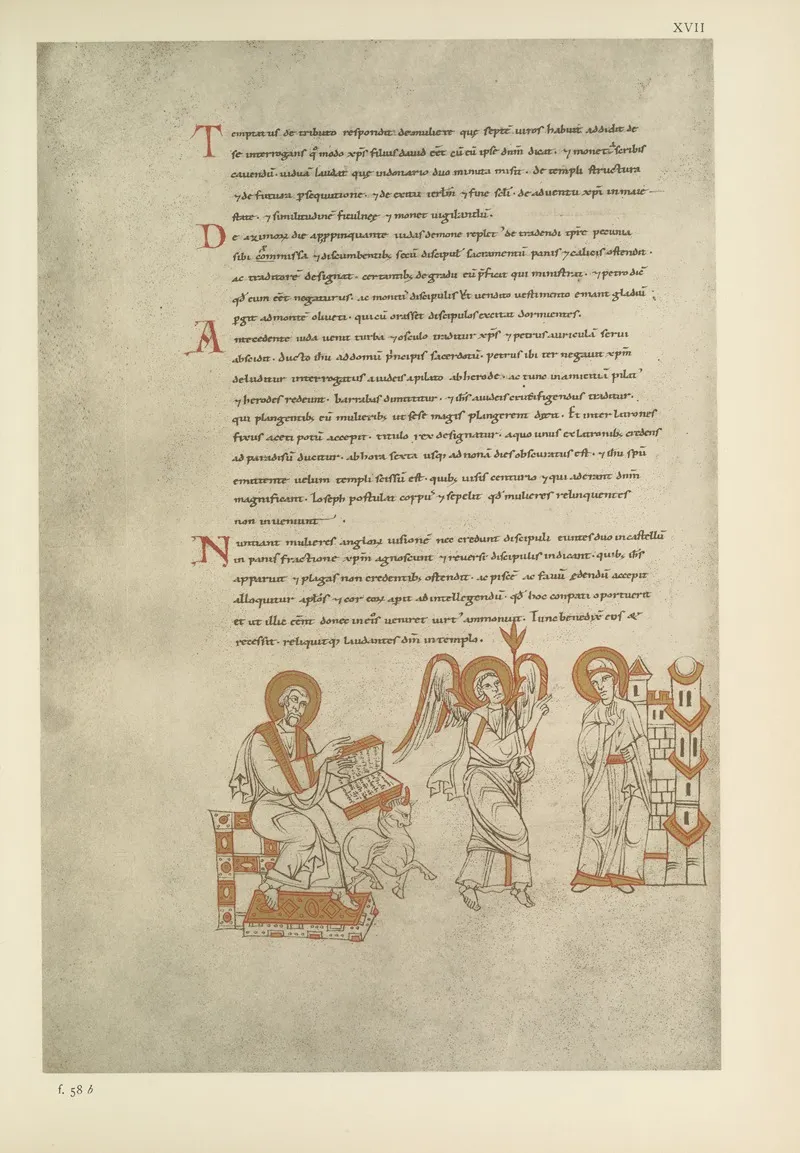 XVII
Temptatus de tributo respondit de muliere quę septē uiros habuit addidit de
se interrogans qͦmodo xp̄s filius dauid eēt cū eū ipse dnm̄ dicat · ⁊ monet a scribis
cauendū · uiduā laudat quę in donario duo minuta misit · De templi structura
⁊ de futura psequutione · ⁊ de exitu ierlm̄ ⁊ fine sc̄li · de aduentu xp̄i in maie
state · ⁊ similitudinē ficulneę ⁊ monet uigilandū ·
De azimoꝝ die appinquante iudas demone replet᾽ de tradendi xp̄i pecunia
sibi cōmissa ⁊ discumbentib; secū discipul᾽ sacramentū panis ⁊ calicis ostendit ·
ac traditorē designat · certantib; de gradu eū p̄ficit qui ministrat · ⁊ petro dic̄
qd̄ eum eēt negaturus · ac monet discipulis ut uendito uestimento emant gladiū ;
pgit ad montē oliueti · qui cū orasset discipulos excitat dormientes ·
Antecedente iuda uenit turba ⁊ osculo traditur xp̄s ⁊ petrus auriculā serui
abscidit · Ducto ihu ad domū p̄ncipis sacerdotū · petrus ibi ter negauit xp̄m
deluditur interrogatus a iudeis a pilato ab herode · ac tunc in amicitiā pilat᾽
⁊ herodes redeunt · barrabas dimittitur · ⁊ ih̄s a iudeis crucifigendus traditur ·
qui plangentib; eū mulierib; ut sese magis plangerent dixit · Et inter latrones
fixus aceti potū accepit · titulo rex designatur · a quo unus ex latronib; credens
ad paradisū ducitur · ab hora sexta usq; ad nonā dies obscuratus est · ⁊ ihu sp̄u
emittente uelum templi scissū est · quib; uisis centurio ⁊ qui aderant dnm̄
magnificant · Ioseph postulat corpus ⁊ sepelit qd̄ mulieres relinquentes
non inueniunt ·
Nuntiant mulieres angloꝝ uisionē nec credunt discipuli euntes duo in castellū
in panis fractione xp̄m agnoscunt ⁊ reuersi discipulis indicant · quib; ih̄s
apparuit ⁊ plagas non credentib; ostendit · ac piscē ac fauū edendū accepit
alloquitur aplōs ⁊ cor eoꝝ apit ad intellegendū · qd̄ hoc eū pati oportuerit
et ut illic eēnt donec in eis ueniret uirt᾽ ammonuit · Tunc benedixit eos &
recessit · reliquitq; laudantes dm̄ in templo ·
f. 58 b